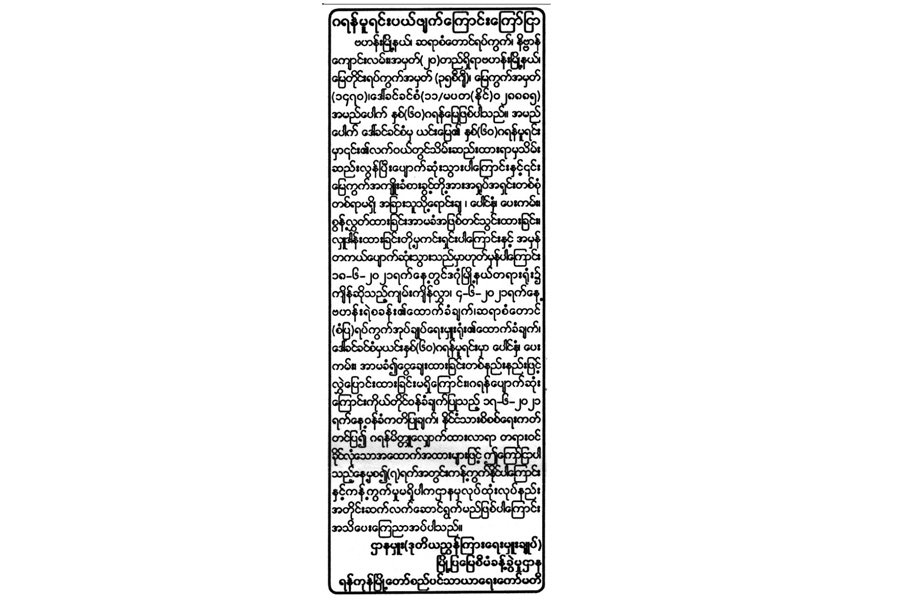 ဂရန်မူရင်းပယ်ဖျက်ကြောင်းကြော်ငြာ
ဗဟန်းမြို့နယ်၊ ဆရာစံတောင်ရပ်ကွက်၊ နိဗ္ဗာန်
ကျောင်းလမ်း၊အမှတ်(၂၀)တည်ရှိရာဗဟန်းမြို့နယ်၊
မြေတိုင်းရပ်ကွက်အမှတ် (၃၅စီ၁)၊ မြေကွက်အမှတ်
(၁၄၇၀)၊ဒေါ်ခင်ခင်စံ(၁၁/မပတ(နိုင်)၀၂၈၈၈၅)
အမည်ပေါက် နှစ်(၆၀)ဂရန်မြေဖြစ်ပါသည်။ အမည်
ပေါက် ဒေါ်ခင်ခင်စံမှ ယင်းမြေ၏ နှစ်(၆၀)ဂရန်မူရင်း
မှာ၎င်း၏လက်ဝယ်တွင်သိမ်းဆည်းထားရာမှသိမ်း
ဆည်းလွန်ပြီးပျောက်ဆုံးသွားပါကြောင်းနှင့်၎င်း
မြေကွက်အကျိုးခံစားခွင့်တို့အားအရှုပ်အရှင်းတစ်စုံ
တစ်ရာမရှိ အခြားသူသို့ရောင်းချ ၊ ပေါင်နှံ၊ ပေးကမ်း၊
စွန့်လွှတ်ထားခြင်းအာမခံအဖြစ်တင်သွင်းထားခြင်း၊
လှူဒါန်းထားခြင်းတို့မှကင်းရှင်းပါကြောင်းနှင့် အမှန်
တကယ်ပျောက်ဆုံးသွားသည်မှာဟုတ်မှန်ပါကြောင်း
၁၈-၆-၂၀၂၁ရက်နေ့တွင်ဒဂုံမြို့နယ်တရားရုံး၌
ကျိန်ဆိုသည့်ကျမ်းကျိန်လွှာ၊ ၄-၆-၂၀၂၁ရက်နေ့
ဗဟန်းရဲစခန်း၏ထောက်ခံချက်၊ဆရာစံတောင်
(စံပြ)ရပ်ကွက်အုပ်ချုပ်ရေးမှူးရုံး၏ထောက်ခံချက်၊
ဒေါ်ခင်ခင်စံမှယင်းနှစ်(၆၀)ဂရန်မူရင်းမှာ ပေါင်နှံ၊ ပေး
ကမ်း၊ အာမခံ၍ငွေချေးထားခြင်းတစ်နည်းနည်းဖြင့်
လွှဲပြောင်းထားခြင်းမရှိကြောင်း၊ဂရန်ပျောက်ဆုံး
ကြောင်းကိုယ်တိုင်ဝန်ခံချက်ပြုသည့် ၁၇-၆-၂၀၂၁
ရက်နေ့ဝန်ခံကတိပြုချက်၊ နိုင်ငံသားစိစစ်ရေးကတ်
တင်ပြ၍ ဂရန်မိတ္တူလျှောက်ထားလာရာ တရားဝင်
ခိုင်လုံသောအထောက်အထားများဖြင့် ဤကြော်ငြာပါ
သည့်နေ့မှစ၍(၇)ရက်အတွင်းကန့်ကွက်နိုင်ပါကြောင်း
နှင့်ကန့်ကွက်မှုမရှိပါကဌာနမှလုပ်ထုံးလုပ်နည်း
အတိုင်းဆက်လက်ဆောင်ရွက်မည်ဖြစ်ပါကြောင်း
အသိပေးကြေညာအပ်ပါသည်။
ဌာနမှူး(ဒုတိယညွှန်ကြားရေးမှူးချုပ်)
မြို့ပြမြေစီမံခန့်ခွဲမှုဌာန
ရန်ကုန်မြို့တော်စည်ပင်သာယာရေးကော်မတီ